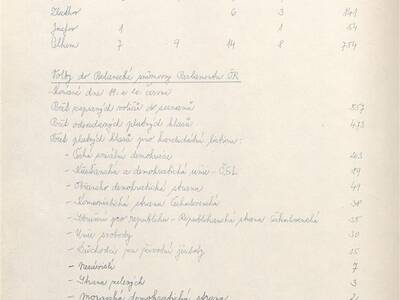 6 3 141
1 1 54
Celkem 7 9 14 8 754
Volby do Poslanecké sněmovny Parlamentu ČR
konané dne 19. a 20. června
Počet zapsaných voličů do seznamů 557
Počet odevzdaných platných hlasů 473
Počet platných hlasů pro kandidující stranu:
- Česká sociální demokracie
- Křesťanská a demokratická unie - ČSL 89
- Občanská demokratická strana 49
- Komunistická strana Československa 38
- Sdružení pro republiku - Republikánská strana Československa 35
- Unie svobody 30
- Důchodci za životní jistoty 15
- Nezávislí 7
- Strana zelených 3
- Moravská demokratická strana 2